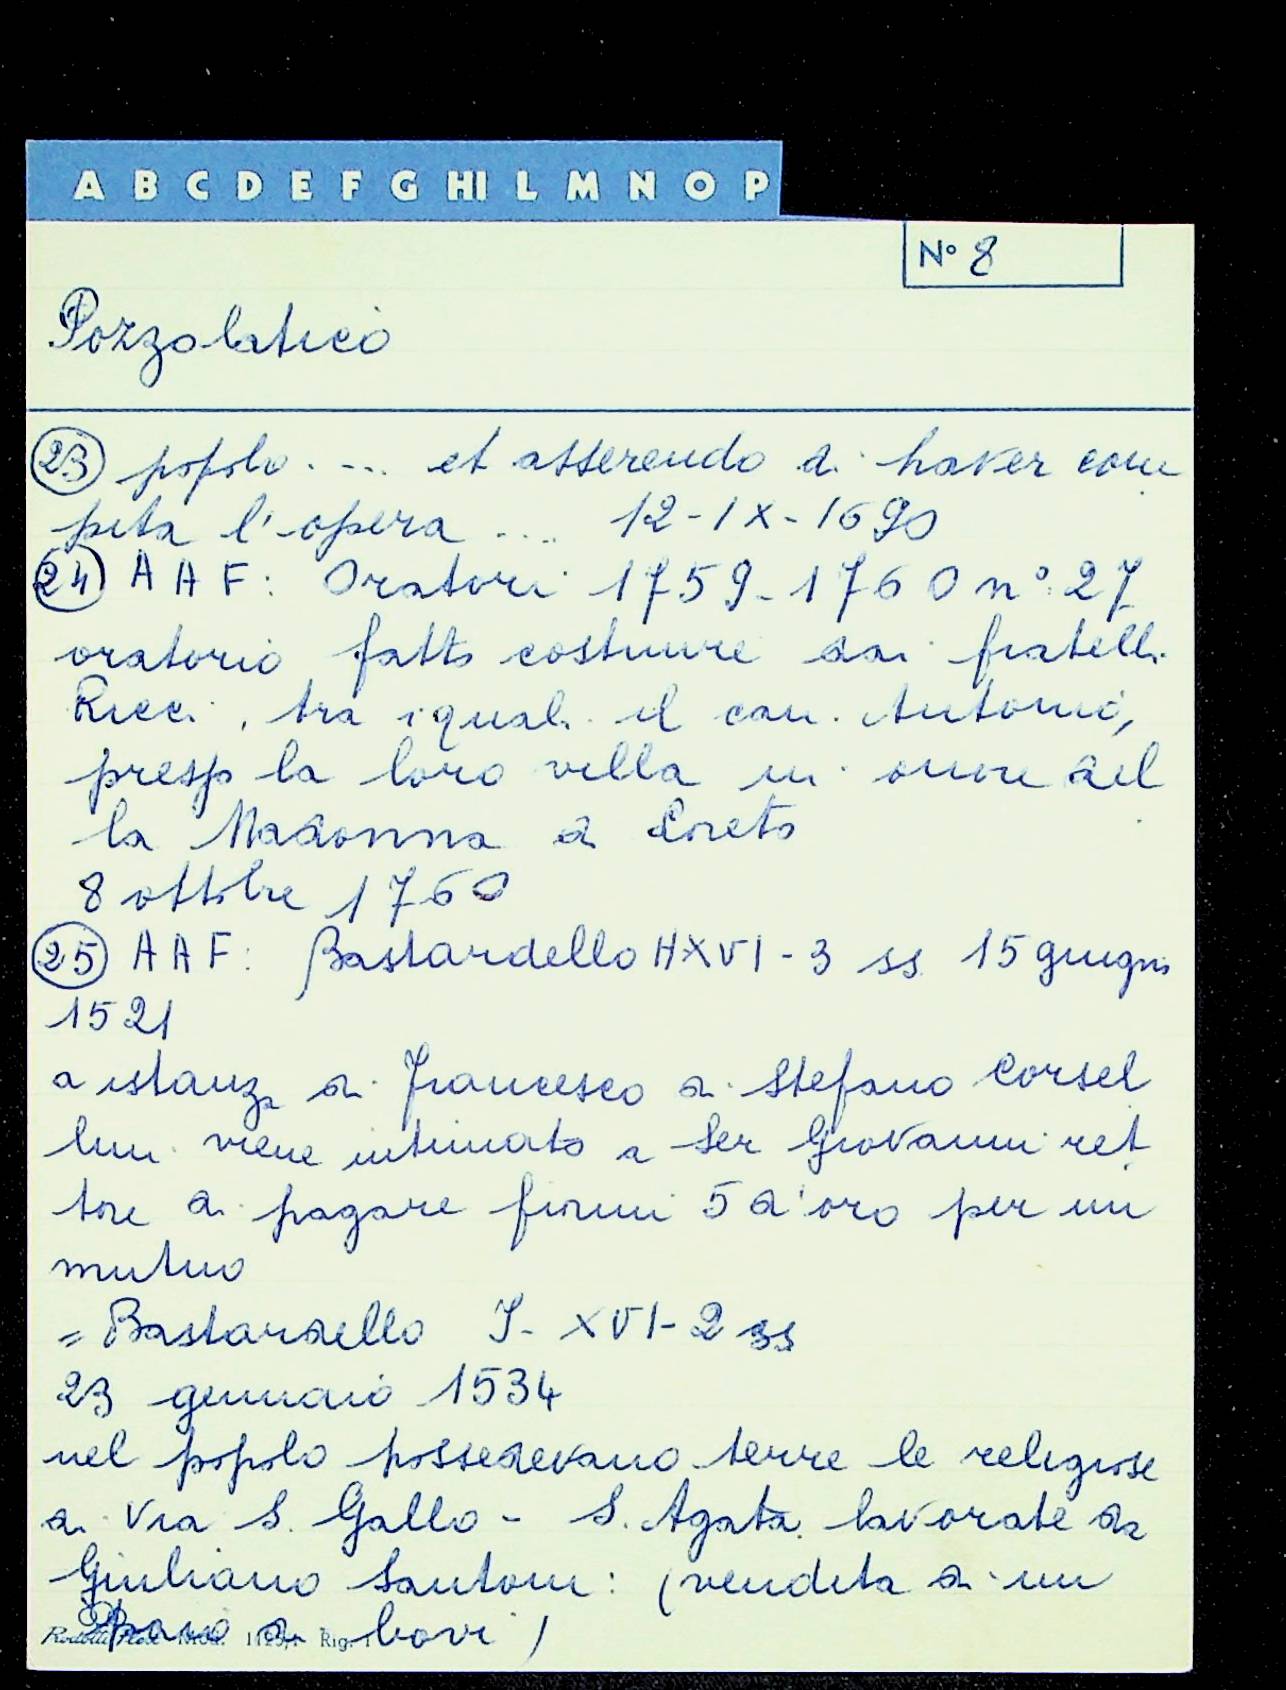 A B C D E F G HI L M N O P
N° 8
Pozzolatico
23 popolo .... et asserendo di haver com
pita l'opera .... 12-IX-1690
24 AAF: Oratori 1759-1760 n° 27
oratorio fatto costruire dai fratelli
Ricci, tra i quali il can. Antonio,
presso la loro villa in onore del
la Madonna di Loreto
8 ottobre 1760
25 AAF: Bastardello HXVI-3 ss 15 giugno
1521
a istanza di Francesco di Stefano Corsel
lini viene intimato a Ser Giovanni ret
tore di pagare fiorini 5 d'oro per un
mutuo
= Bastardello I- XVI-2 ss
23 gennaio 1534
nel popolo possedevano terre le religiose
di Via S. Gallo - S. Agata lavorate da
Giuliano Santoni: (vendita di un
paio di bovi)
Rig.